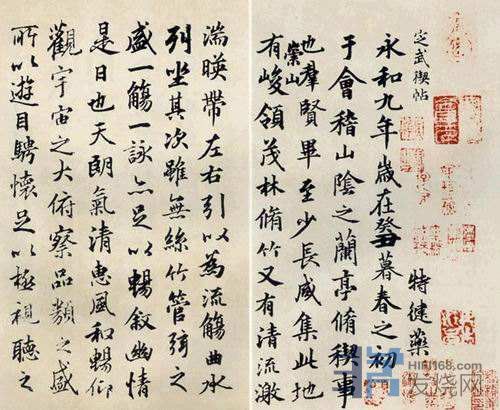 特健藥
定武禊帖
永和九年歲在癸丑暮春之初
于會稽山陰之蘭亭脩稧事
也羣賢畢至少長咸集此地
有崇山峻領茂林脩竹又有清流激
湍暎帶左右引以為流觴曲水
列坐其次雖無絲竹管弦之
盛一觴一詠亦足以暢敘幽情
是日也天朗氣清惠風和暢仰
觀宇宙之大俯察品類之盛
所以遊目騁懷足以極視聽之
HIFI168.com
发烧网